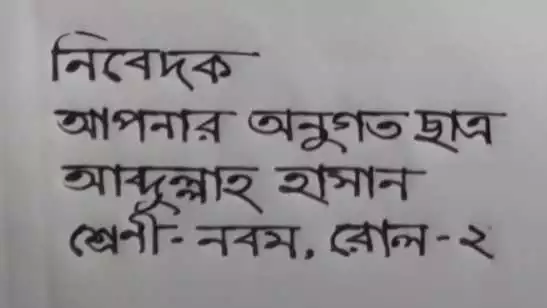 নিবেদক
আপনার অনুগত ছাত্র
আব্দুল্লাহ হাসান
শ্রেণী- নবম, রোল - ২